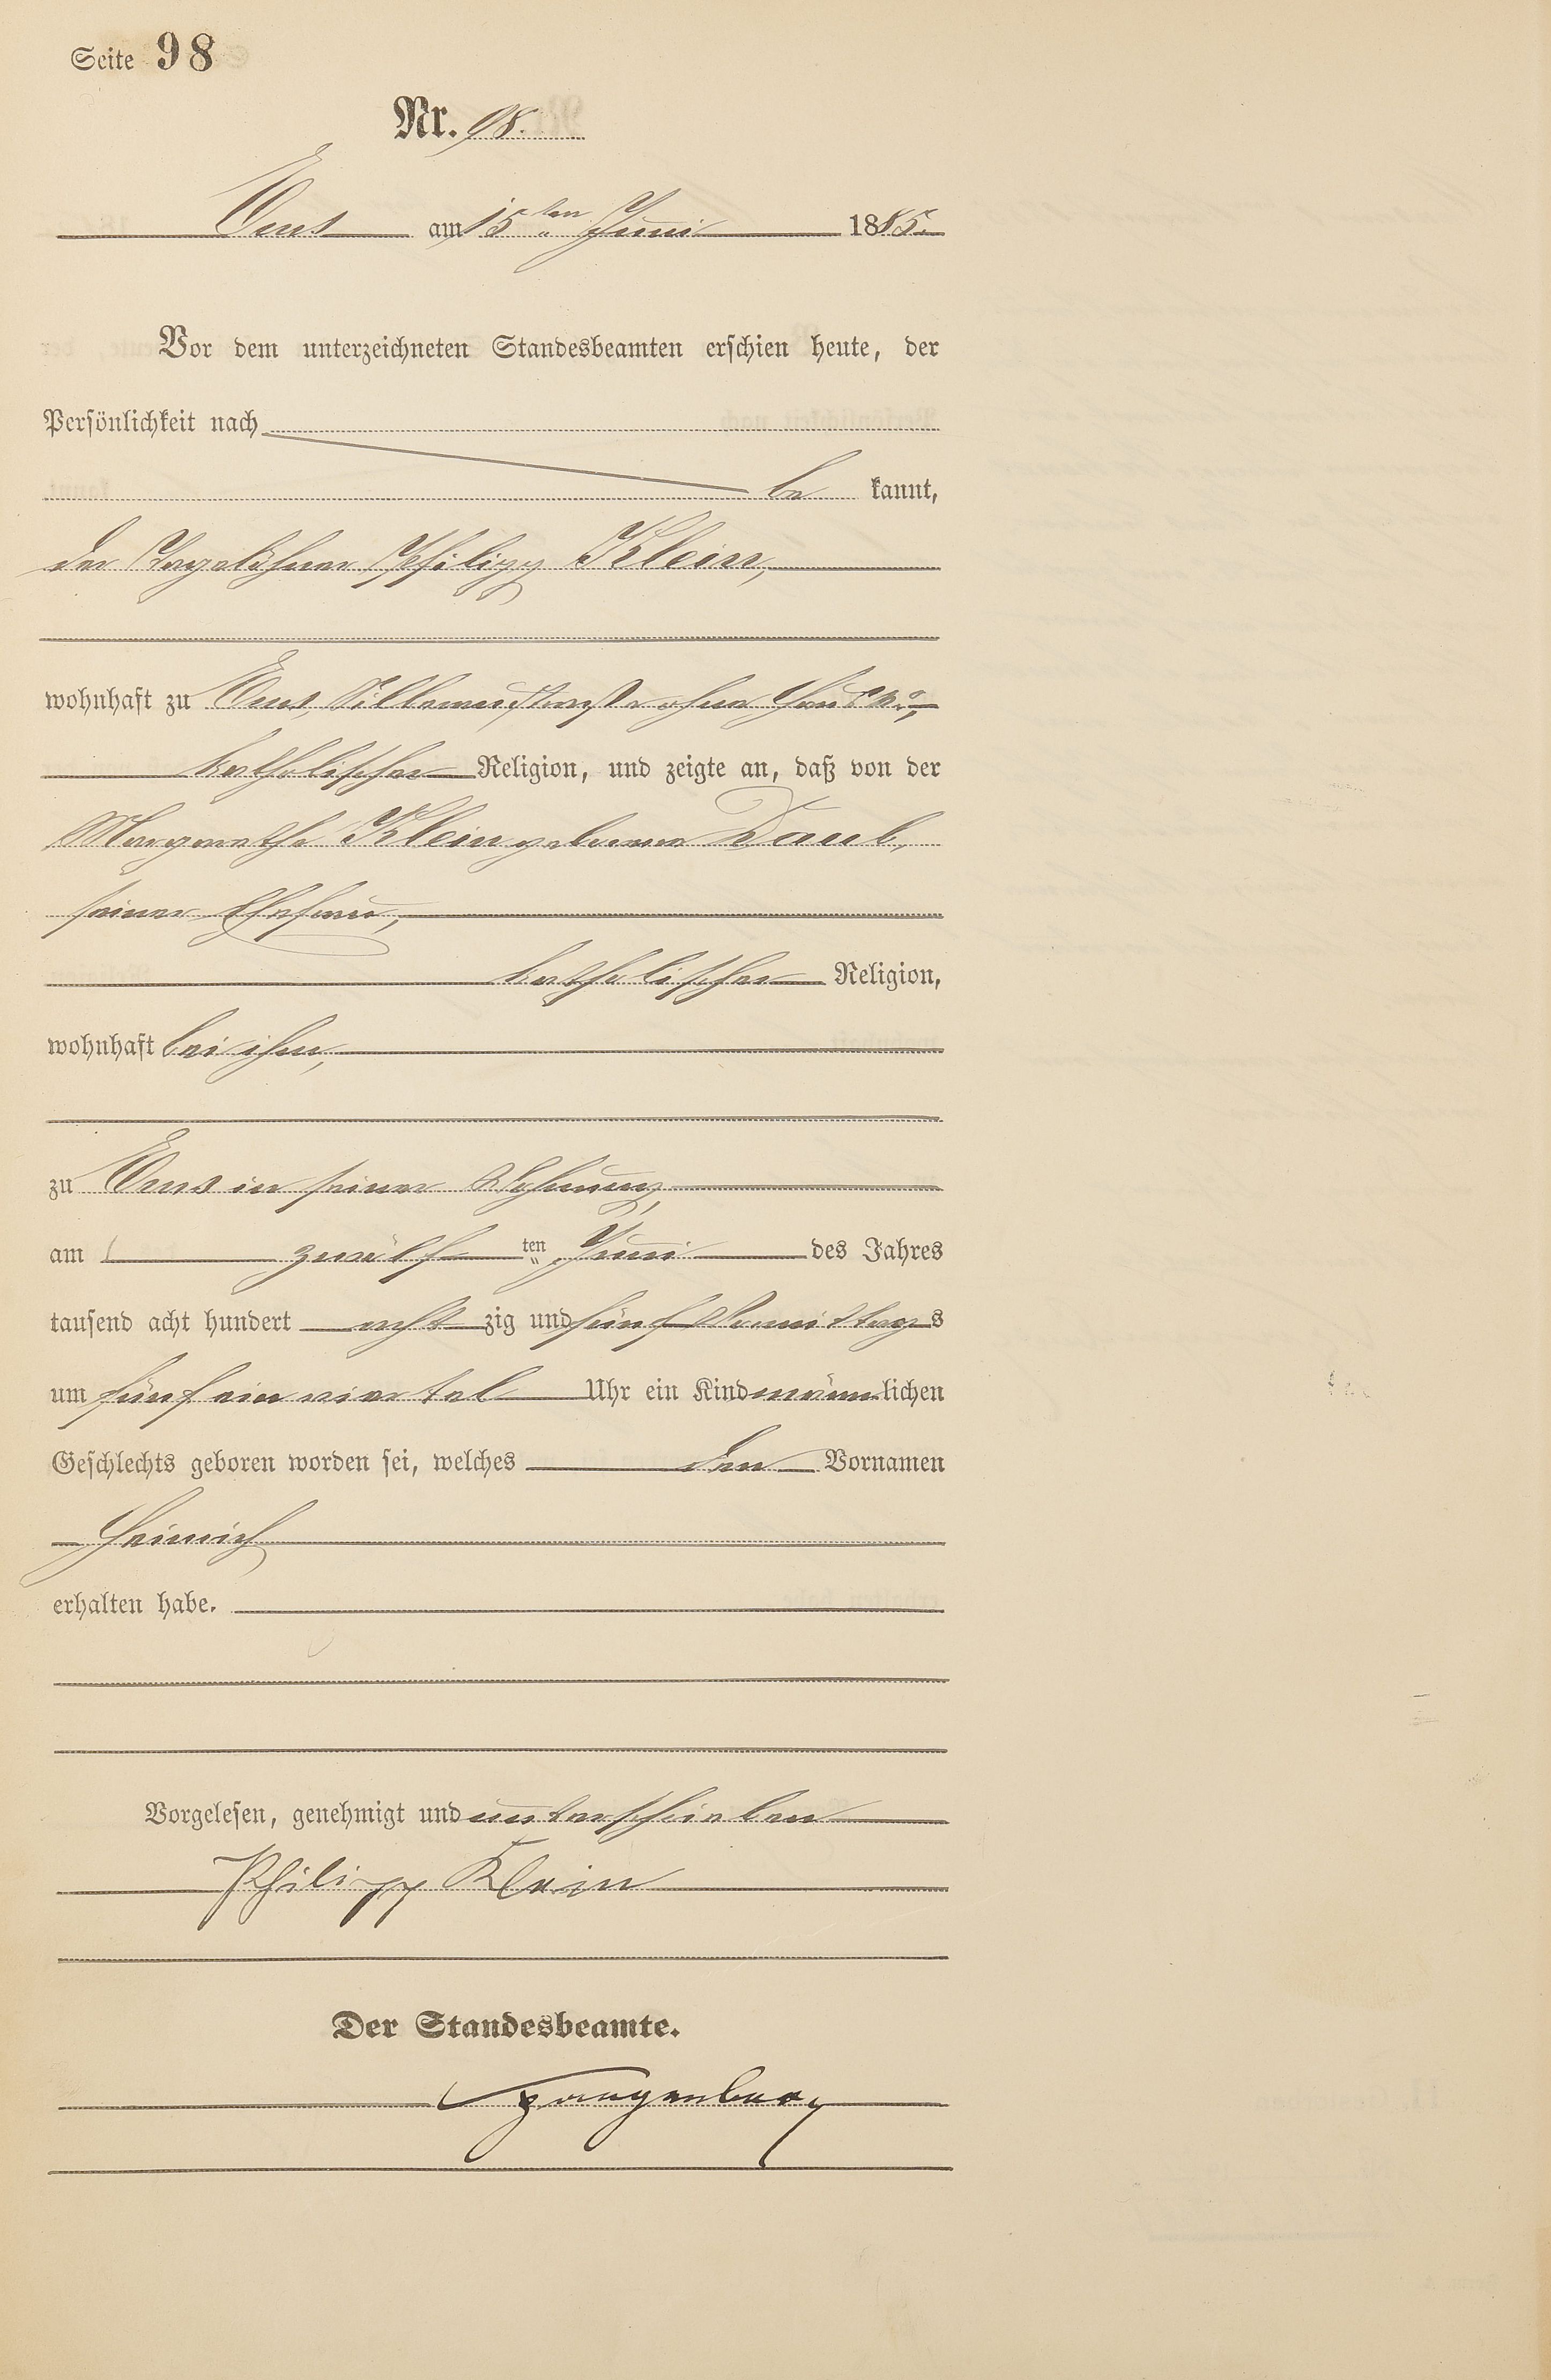 Seite 98
Nr. 98.
Ems am 15ten Juni 1885.
Vor dem unterzeichneten Standesbeamten erschien heute, der
Persönlichkeit nach
be kannt,
der Tagelöhner Philipp Klein,
wohnhaft zu Ems, ohne Haus No,
katholischer Religion, und zeigte an, daß von der
Margarethe Klein geborene Daub,
seiner Ehefrau,
katholischer Religion,
wohnhaft bei ihm,
zu Ems in seiner Wohnung,
am zwölf ten Juni des Jahres
tausend acht hundert acht zig und fünf Vormittags
um fünf ein viertel Uhr ein Kind männlichen
Geschlechts geboren worden sei, welches den Vornamen
Heinrich
erhalten habe.
Vorgelesen, genehmigt und unterschrieben
Philipp Klein
Der Standesbeamte.
Spangenberg